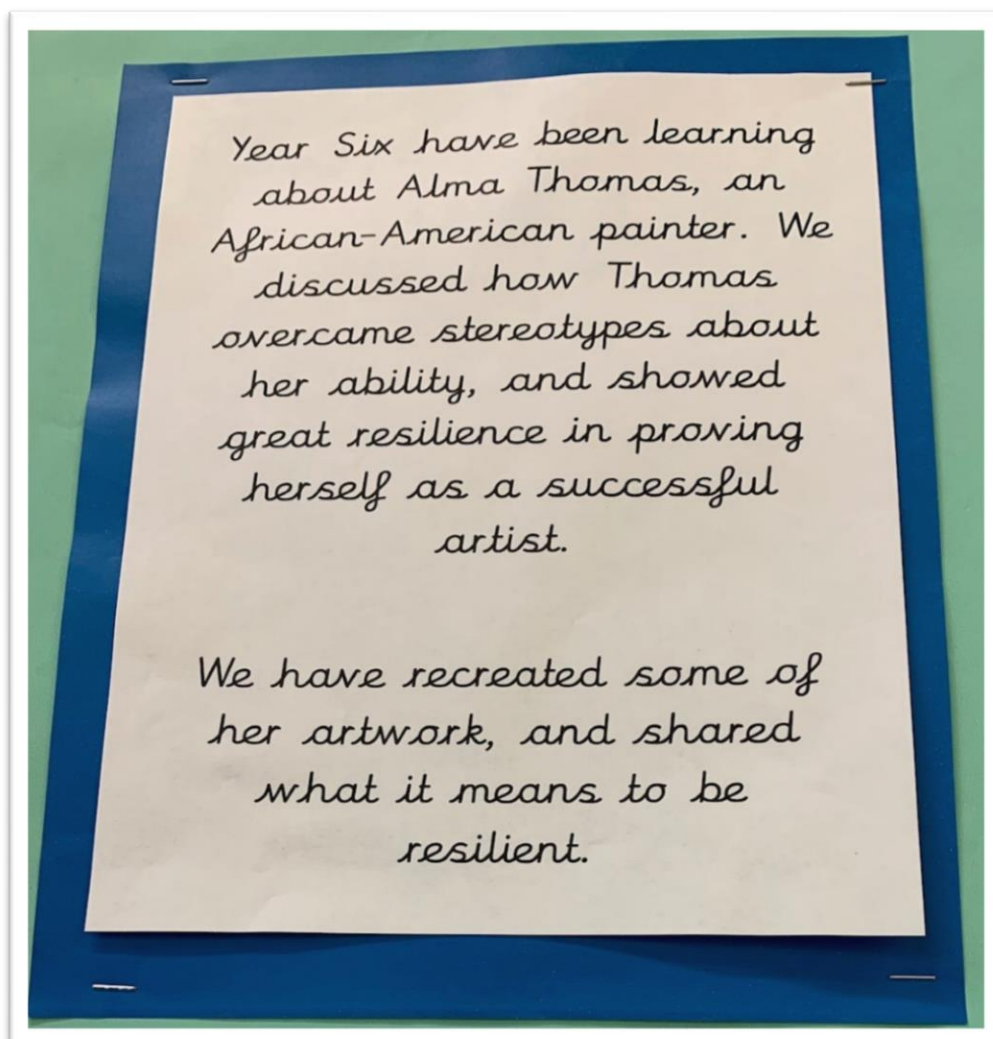 Year Six have been learning
about Alma Thomas, an
African-American painter. We
discussed how Thomas
overcame stereotypes about
her ability, and showed
great resilience in proving
herself as a successful
artist.
We have recreated some of
her artwork, and shared
what it means to be
resilient.